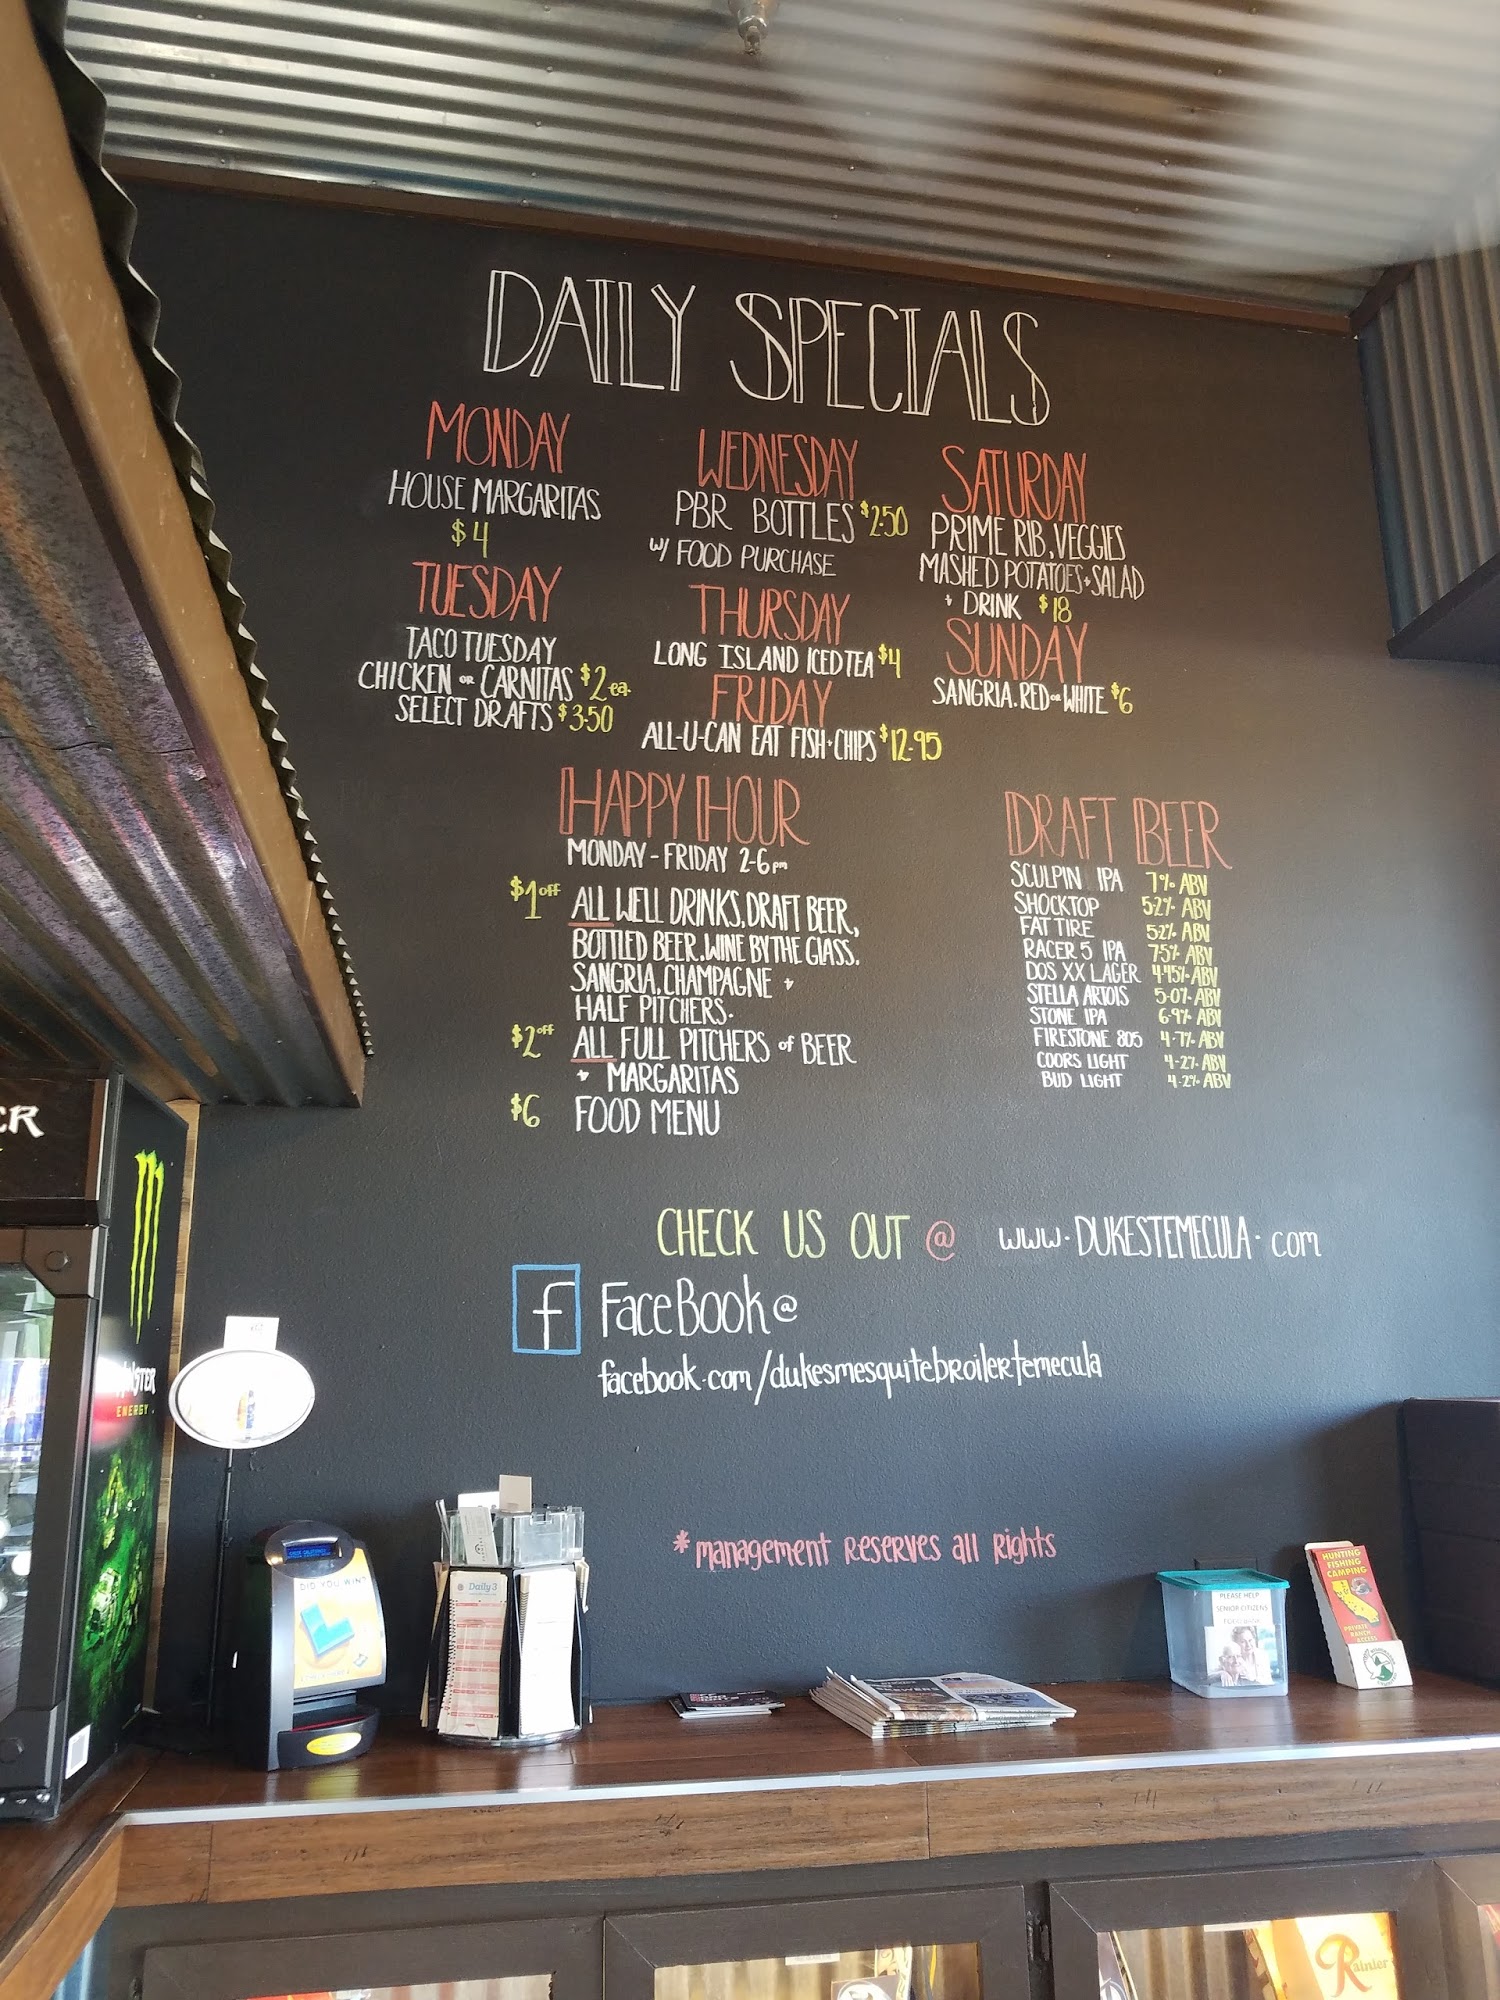 DAILY SPECIALS
MONDAY
HOUSE MARGARITAS
$4
TUESDAY
TACO TUESDAY
CHICKEN OR CARNITAS $2 ea.
SELECT DRAFTS $3.50
WEDNESDAY
PBR BOTTLES $2.50
W/ FOOD PURCHASE
THURSDAY
LONG ISLAND ICED TEA $4
FRIDAY
ALL-U-CAN EAT FISH + CHIPS $12.95
SATURDAY
PRIME RIB, VEGGIES
MASHED POTATOES + SALAD
+ DRINK $18
SUNDAY
SANGRIA. RED OR WHITE $6
HAPPY HOUR
MONDAY - FRIDAY 2-6 pm
$1 off ALL WELL DRINKS, DRAFT BEER,
BOTTLED BEER, WINE BY THE GLASS,
SANGRIA, CHAMPAGNE +
HALF PITCHERS.
$2 off ALL FULL PITCHERS of BEER
+ MARGARITAS
$6 FOOD MENU
DRAFT BEER
SCULPIN IPA 7% ABV
SHOCKTOP 5.2% ABV
FAT TIRE 5.2% ABV
RACER 5 IPA 7.5% ABV
DOS XX LAGER 4.45% ABV
STELLA ARTOIS 5.0% ABV
STONE IPA 6.9% ABV
FIRESTONE 805 4.7% ABV
COORS LIGHT 4.2% ABV
BUD LIGHT 4.2% ABV
CHECK US OUT @ www.DUKESTEMECULA.com
f FaceBook @
facebook.com/dukesmesquitebroilertemecula
*management reserves all rights
MONSTER
ENERGY
DID YOU WIN?
Daily 3
PLEASE HELP
SENIOR CITIZENS
FOOD BANK
HUNTING
FISHING
CAMPING
PRIVATE
RANCH
ACCESS
Rainier